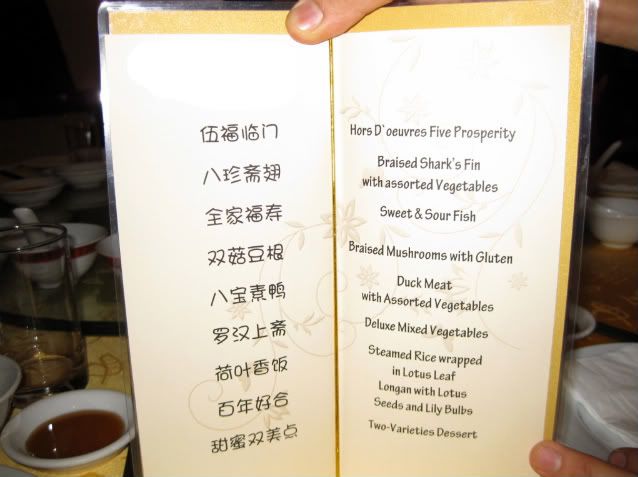 伍福临门
八珍斋翅
全家福寿
双菇豆根
八宝素鸭
罗汉上斋
荷叶香饭
百年好合
甜蜜双美点
Hors D`oeuvres Five Prosperity
Braised Shark's Fin
with assorted Vegetables
Sweet & Sour Fish
Braised Mushrooms with Gluten
Duck Meat
with Assorted Vegetables
Deluxe Mixed Vegetables
Steamed Rice wrapped
in Lotus Leaf
Longan with Lotus
Seeds and Lily Bulbs
Two-Varieties Dessert